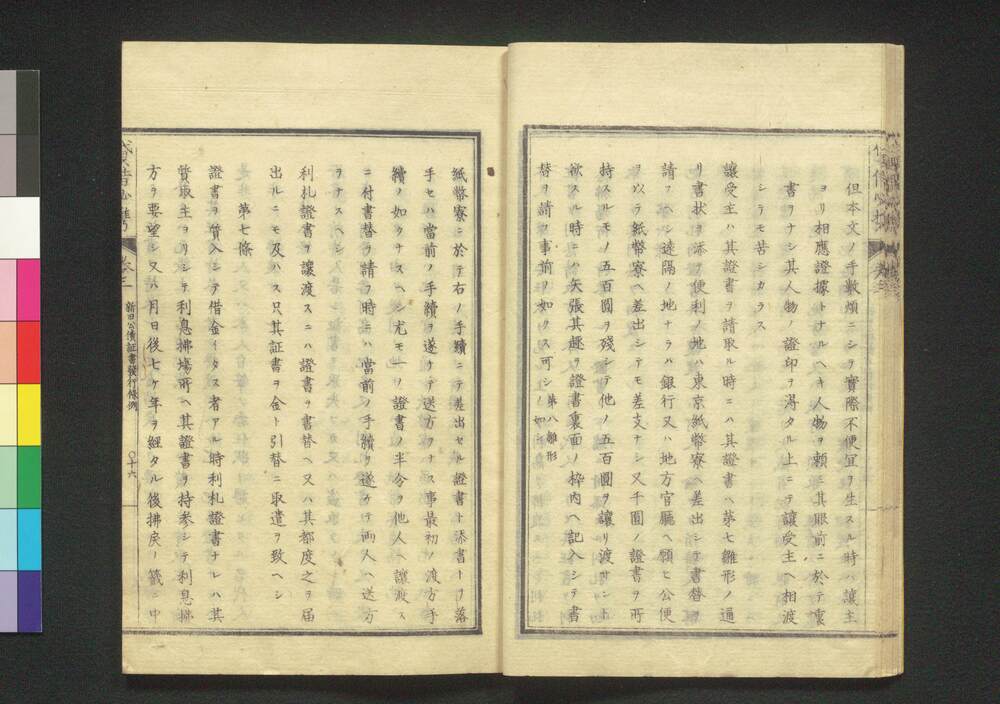 但本文ノ手數煩ニシテ實際不便宜ヲ生スル時ハ讓主
ヨリ相應證據トナルヘキ人物ヲ頼ミ其眼前ニ於テ裏
書ヲナシ其人物ノ證印ヲ得タル上ニテ讓受主ヘ相渡
シラモ苦シカラス
讓受主ハ其證書ヲ請取ル時ニハ其證書ヘ第七雛形ノ通
リ書狀ヲ添ヘ便利ノ地ハ東京紙幣寮ヘ差出シテ書替ヲ
請フヘシ遠隔ノ地ナラハ銀行又ハ地方官廳ヘ願ヒ公便
ヲ以テ紙幣寮ヘ差出シテモ差支ナシ又千圓ノ證書ヲ所
持スルモノ五百圓ヲ殘シテ他ノ五百圓ヲ讓リ渡サント
欲スル時ニハ矢張其趣ヲ證書裏面ノ枠内ヘ記入シテ書
替ヲ請フ事前ノ如クス可シ 第八雛形ノ如シ
紙幣寮ニ於テ右ノ手續ニテ差出セル證書ト添書トヲ落
手セハ當前ノ手續ヲ遂ケテ送方ヲナス事最初ノ渡方手
續ノ如クナスヘシ尤モ一ノ證書ノ半分ヲ他人ヘ讓渡ス
ニ付書替ヲ請フ時ニハ當前ノ手續ヲ遂ケテ両人ヘ送方
ヲナスヘシ
第七條
利札證書ヲ讓渡スニハ證書ヲ書替ヘ又ハ其都度之ヲ届
出ルニモ及ハス只其証書ヲ金ト引替ニ取遣ヲ致ヘシ
證書ヲ質入シテ借金イタス者アル時利札證書ナレハ其
質取主ヨリシテ利息拂場所ヘ其證書ヲ持参シテ利息拂
方ヲ要望シ又八月日後七ケ年ヲ経タル後拂戻ノ籤ニ中
卷三
新旧公債証書發行條例
〇十六